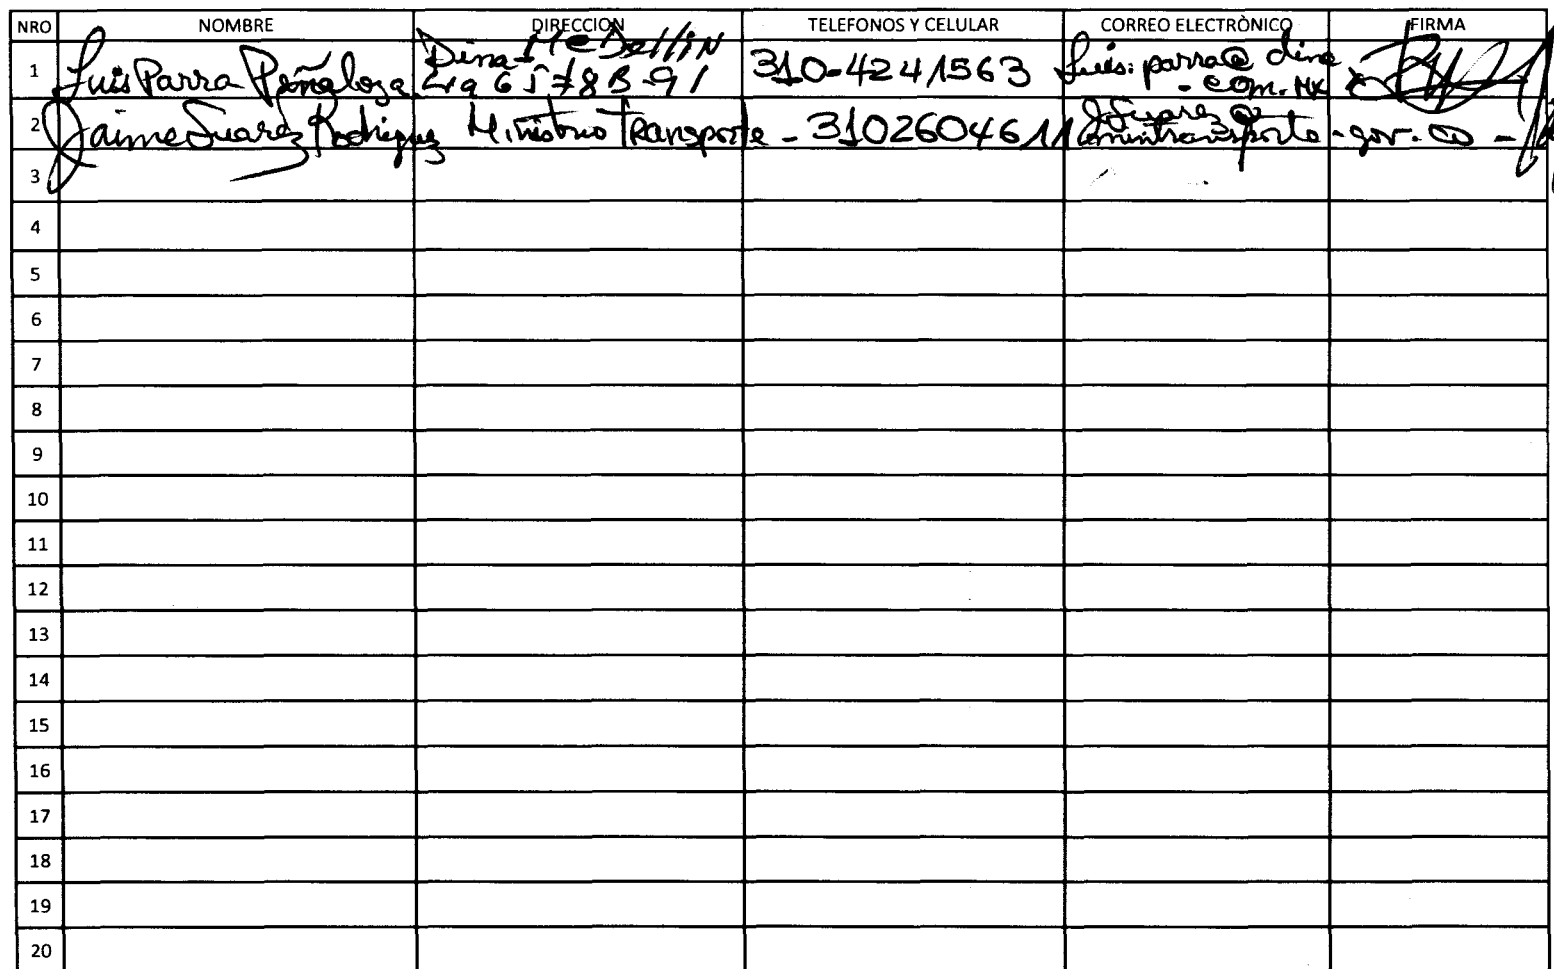 NRO NOMBRE DIRECCION TELEFONOS Y CELULAR CORREO ELECTRÒNICO FIRMA
1 Luis Parra Peñaloza Dina Medellin 310-4241563 Luis.parra@dina
65 78B-91 .com.MX
2 Jaime Suarez Rodriguez Ministrio Transporte - 3102604611 JSuarez@
mintransporte.gov.co -
3
4
5
6
7
8
9
10
11
12
13
14
15
16
17
18
19
20